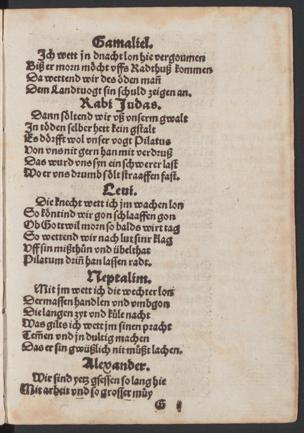 Gamaliel.
Ich wett jn dnacht lon hie vergoumen
Biß er morn möcht vffs Radthuß kommen
Da wettend wir des öden mañ
Dem Landtuogt sin schuld zeigen an.
Rabi Judas.
Dann söltend wir vß vnserm gwalt
In töden selber heit kein gstalt
Es dörfft wol vnser vogt Pilatus
Von vns nit gern han mit verdruß
Das wurd vns syn ein schwerer last
Wo er vns drumb sölt straaffen fast.
Leui.
Die knecht wett ich jm wachen lon
So köntind wir gon schlaaffen gon
Ob Gott wil morn so balds wirt tag
So wettend wir nach lut sinr klag
Vff sin mißthůn vnd übelthat
Pilatum driñ han lassen radt.
Neptalim.
Mit jm wett ich die wechter lon
Dermassen handlen vnd vmbgon
Die langen zyt vnd küle nacht
Was gilts ich wett jm sinen pracht
Temen vnd jn dultig machen
Das er sin gwüßlich nit müßt lachen.
Alexander.
Wir sind yetz gsessen so lang hie
Mit arbeit vnd so grosser müy
G